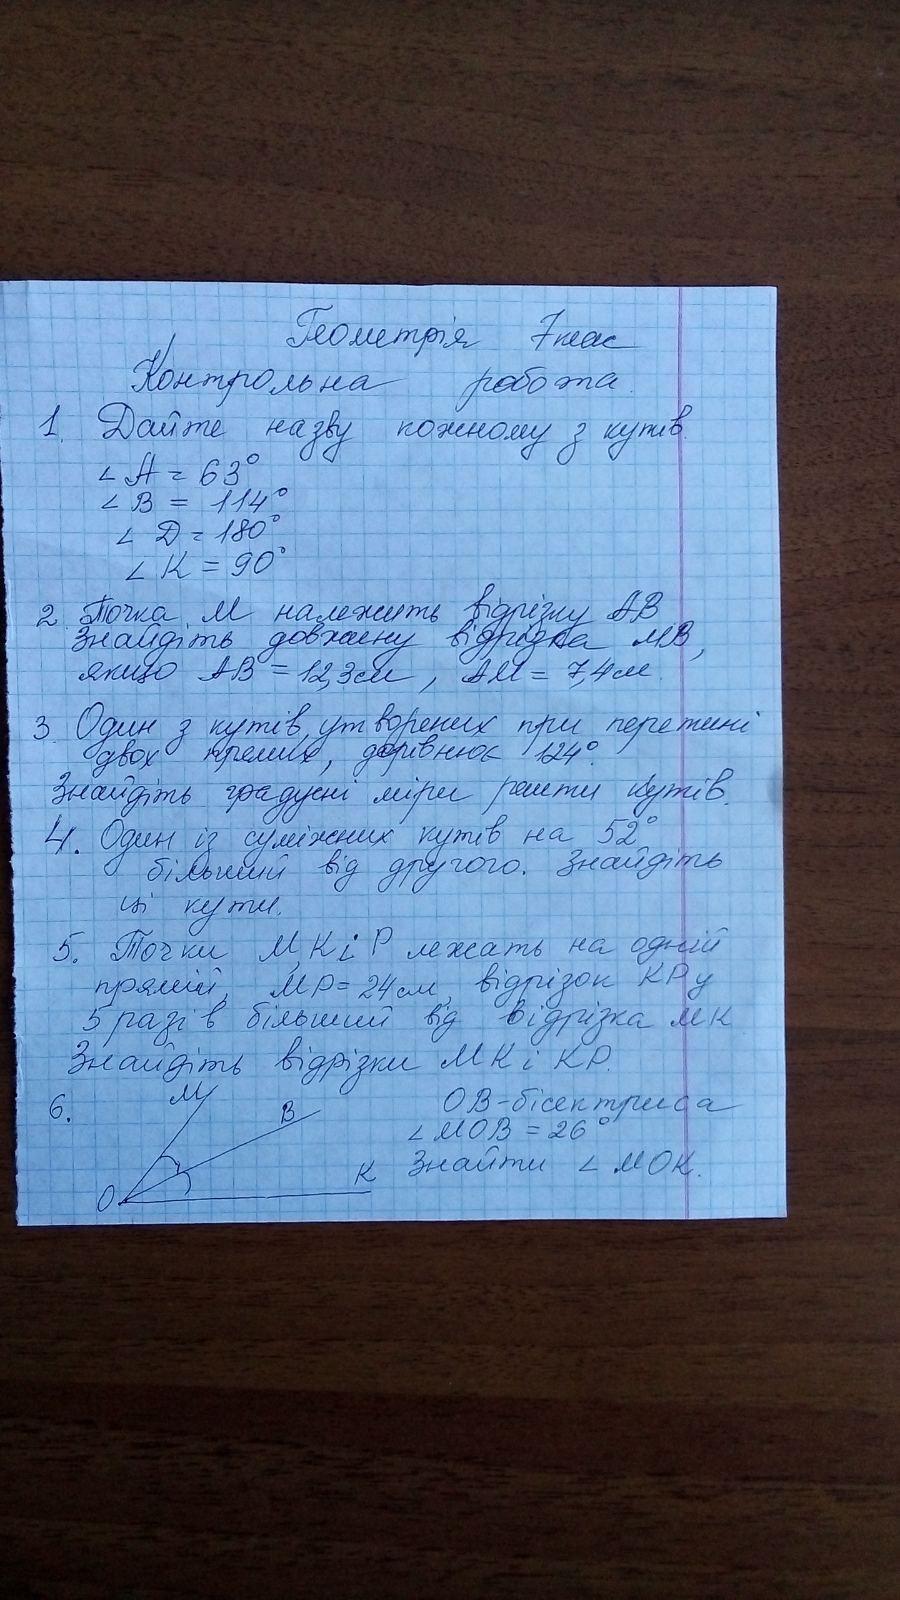 Геометрія 7 клас
Контрольна робота.
1. Дайте назву кожному з кутів.
∠A = 63°
∠B = 114°
∠D = 180°
∠K = 90°
2. Точка M належить відрізку AB
Знайдіть довжину відрізка MB,
якщо AB = 12,3см, AM = 7,4см.
3. Один з кутів, утворених при перетині
двох прямих, дорівнює 124°.
Знайдіть градусні міри решти кутів.
4. Один із суміжних кутів на 52°
більший від другого. Знайдіть
ці кути.
5. Точки M, K і P лежать на одній
прямій, MP = 24см, відрізок KP у
5 разів більший від відрізка MK
Знайдіть відрізки MK і KP.
6. M B K O
OB-бісектриса
∠MOB = 26°
Знайти ∠MOK.